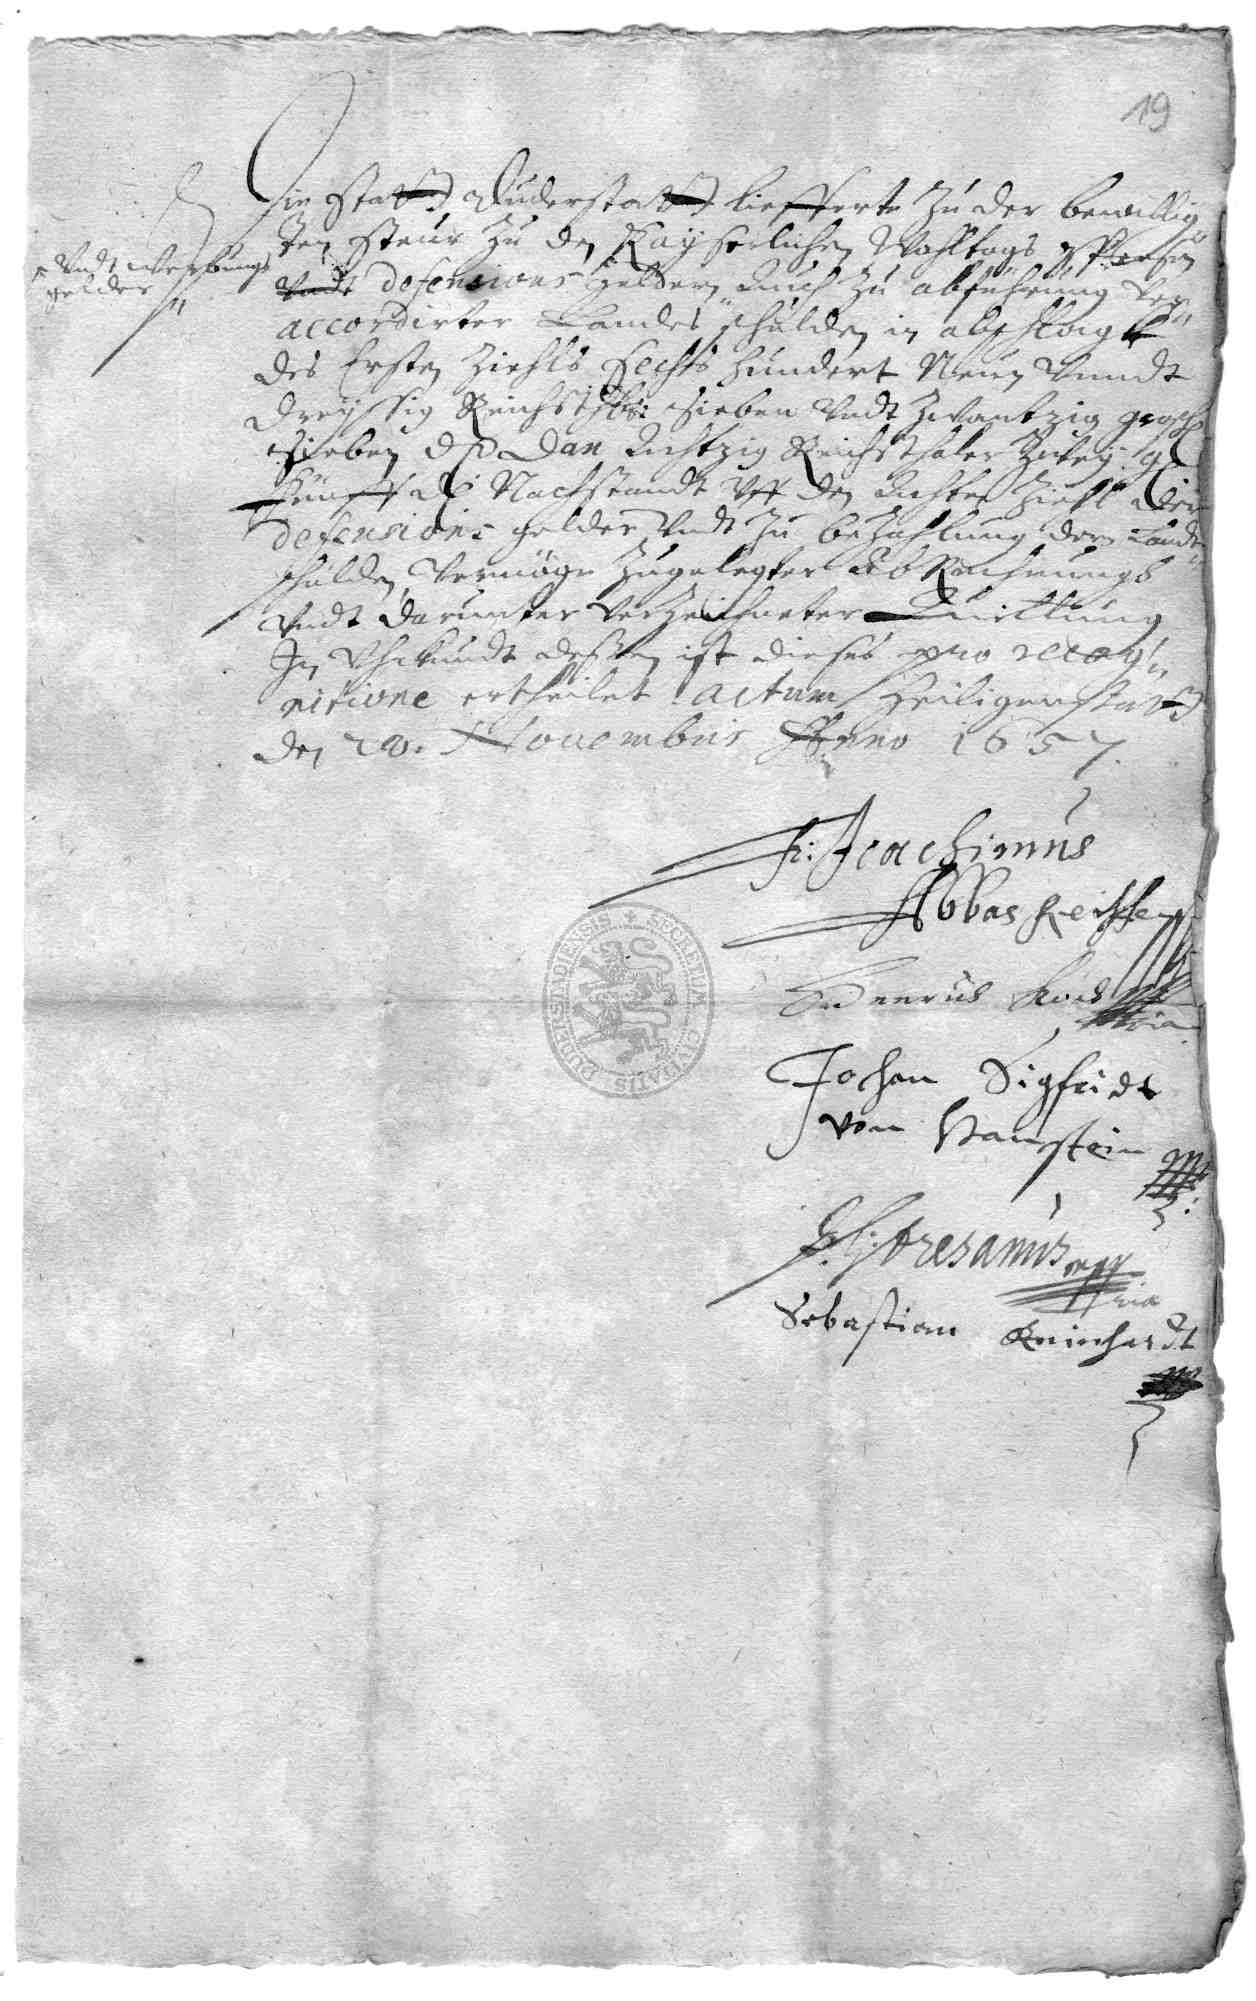 19
Die Statt Duderstatt liefferte zu der bewillig„
ten Steur zu den Kayserlichen Wahltags
Vndt Werbungs
gelder
Vndt defensions geldern Auch zu abführung der
accordirter Landes„schulden in abschlag
des Ersten Ziehls Sechs hundert Neun Vnndt
dreyssig Reichsthlr: Sieben Vndt zwantzig grosch
Sieben d Dan Achtzig Reichsthaler zwey gl
fünff Nachstandt Vff den Achten Ziehl der
defensions gelder Vndt zu bezahlung der Landt
schulden, Vermöge zugelegter Ab Rechnungs
Vndt darunter Verzeichneter Quittung
In Vhrkundt dessen ist dieses pro recog„
nitione ertheilet actum Heiligenstatt
den 20. Nouembris Anno 1657.
fr: Joachimus
Abbas
Johan Sigfridt
von Hanstein
Sebastian Reinhardt
SECRETUM CIVITATIS DUDERSTADIENSIS